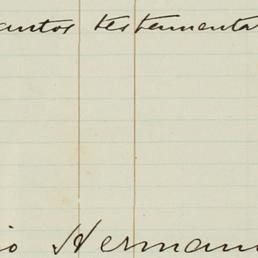 antos testamenta
io Hermann